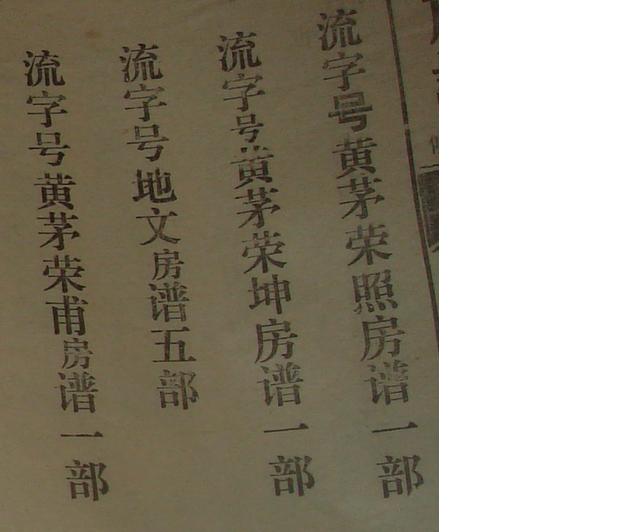 流字号黄茅荣照房谱一部
流字号黄茅荣坤房谱一部
流字号地文房谱五部
流字号黄茅荣甫房谱一部